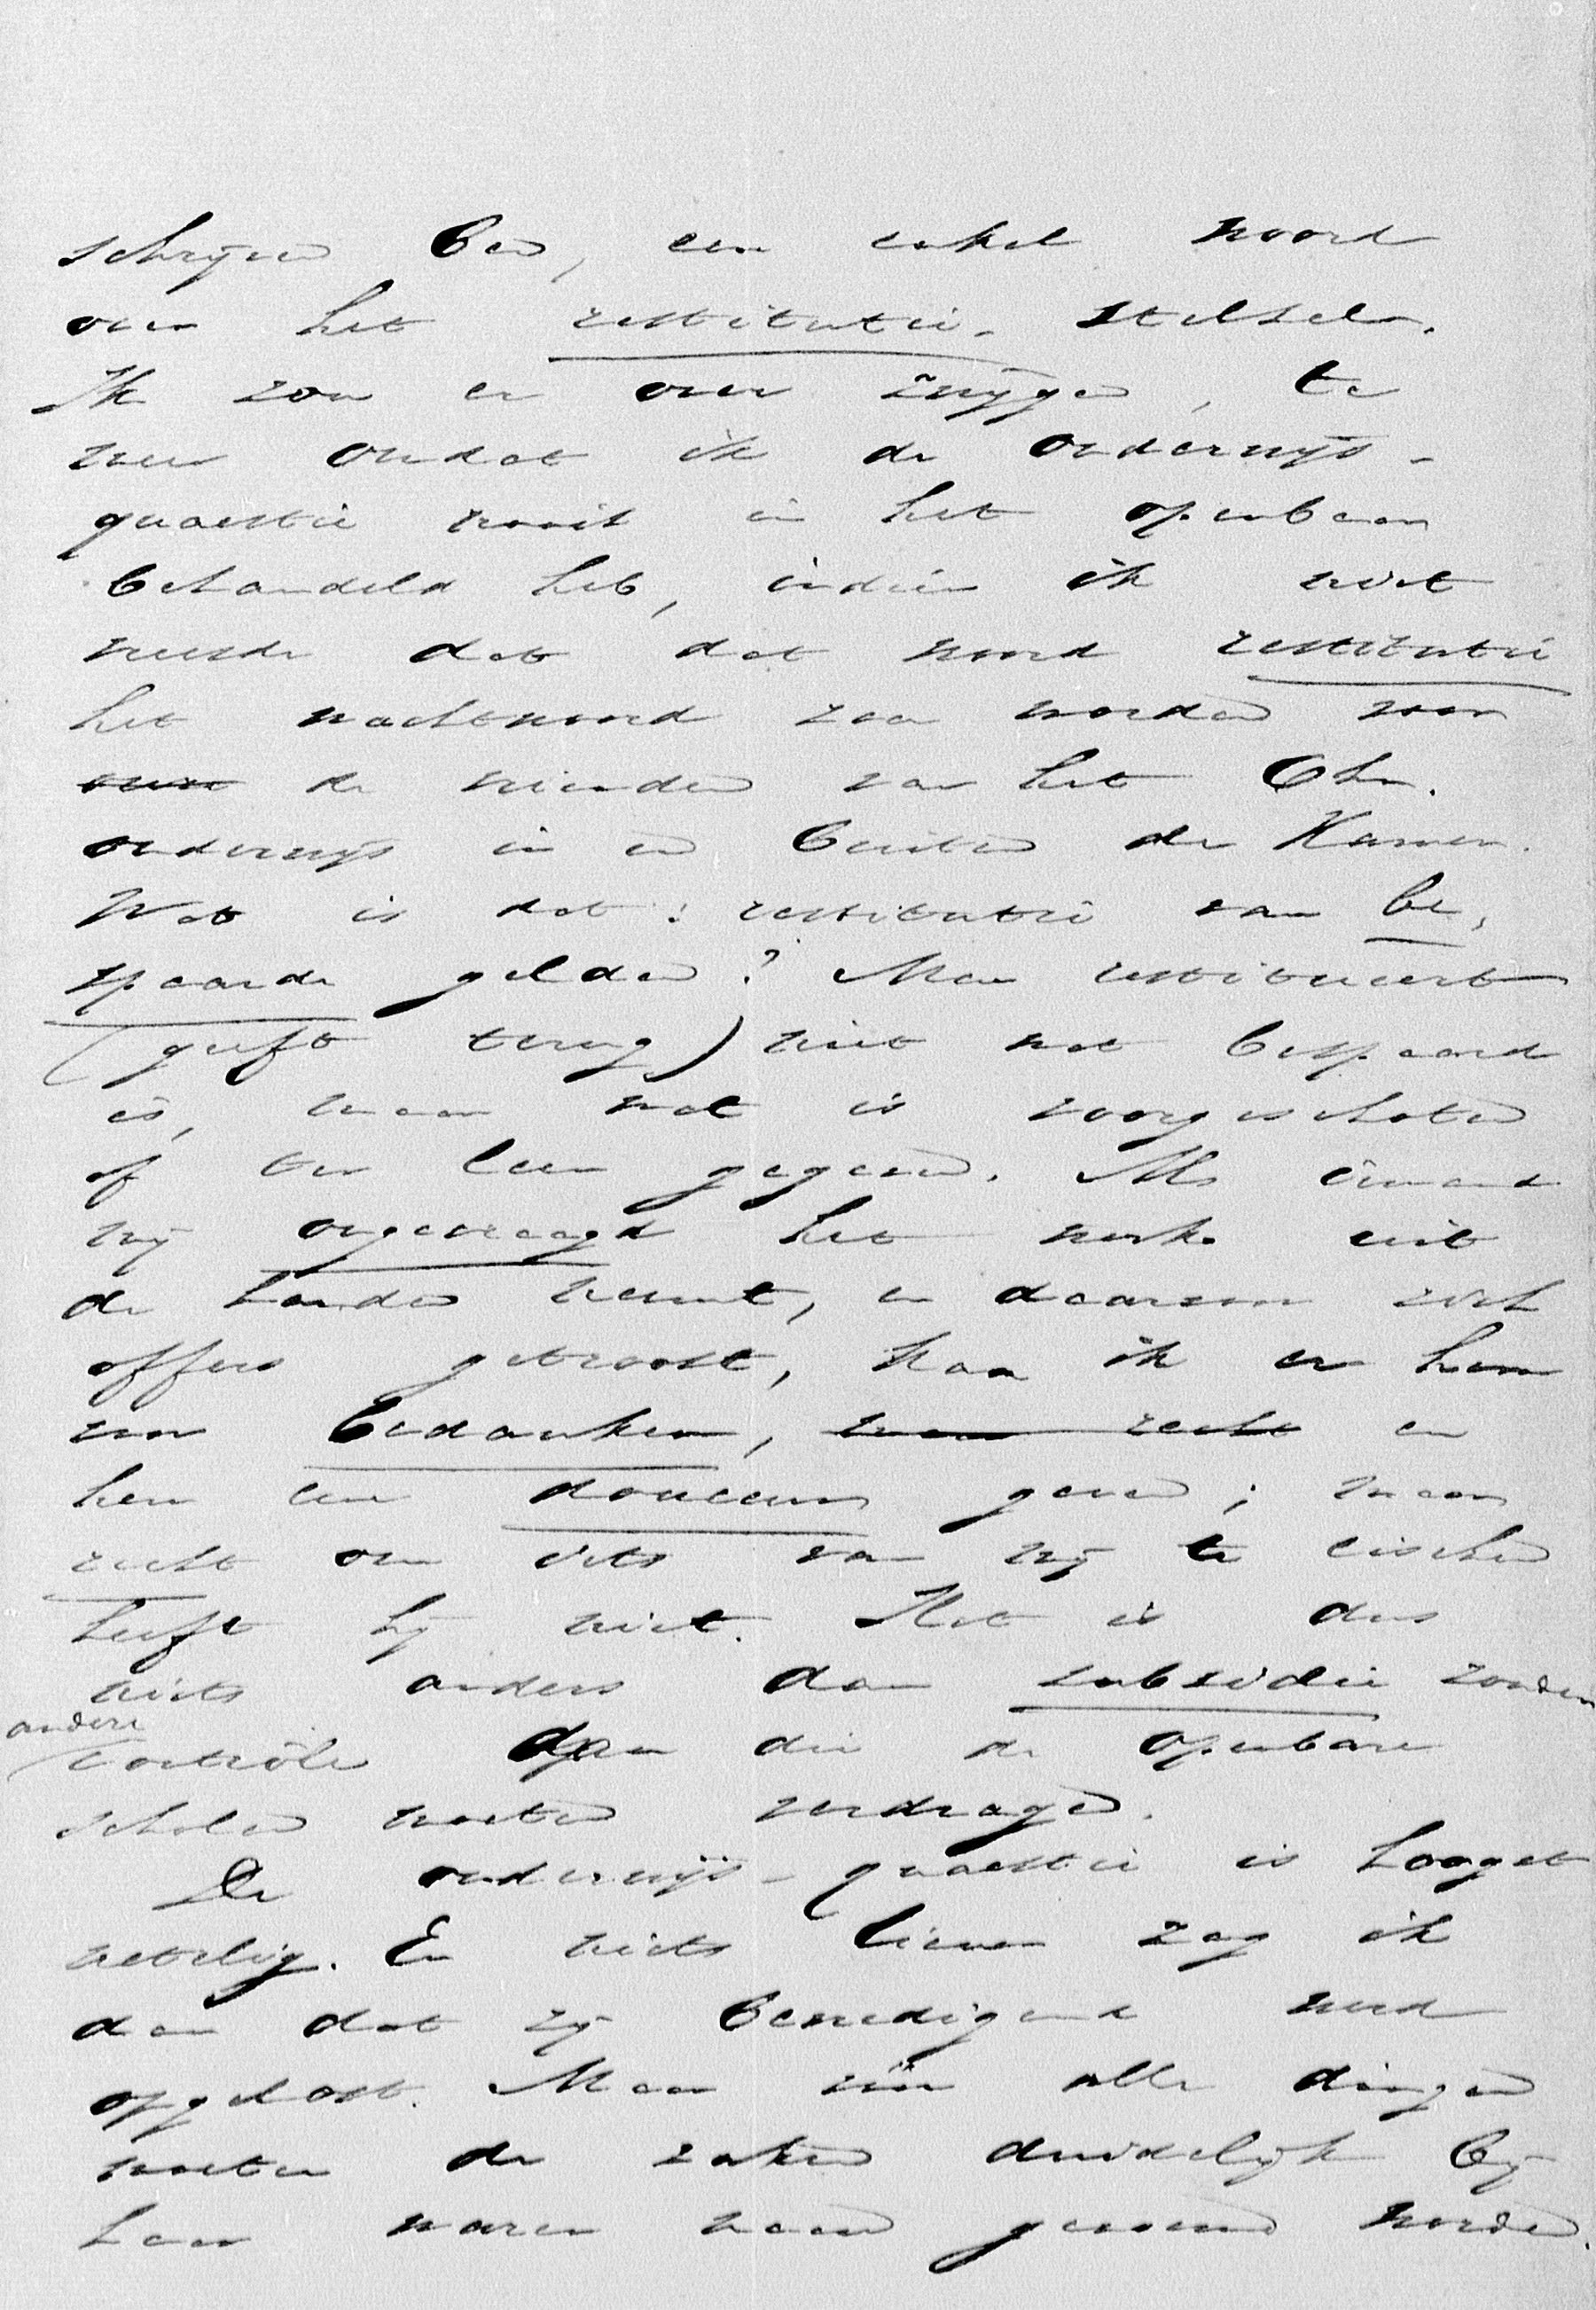 schrijven ben, een enkel woord
over het restitutie-stelsel.
Ik zou er over zwijgen, te
meer omdat ik de onderwijs-
quaestie nooit in het openbaar
behandeld heb, indien ik niet
vreesde dat dat woord restitutie
het wachtwoord zou worden voor
onze de vrienden van het Chr.
onderwijs in en buiten de Kamer.
Wat is dat: restitutie van be-
spaarde gelden? Men restitueert
(geeft terug) niet wat bespaard
is, maar wat is voorgeschoten
of ter leen gegeven. Als iemand
mij ongevraagd het werk uit
de handen neemt, en daarvoor zich
offers getroost, kan ik er hem
voor bedanken, maar recht en
hem een douceur geven; maar
recht om iets van mij te eischen
heeft hij niet. Het is dus
niets anders dan subsidie zonder
andere
contrôle dan die de openbare
scholen moeten verdragen.
De onderwijs-quaestie is hoogst
netelig. En niets liever zag ik
dan dat zij bevredigend werd
opgelost. Maar vóór alle dingen
moeten de zaken duidelijk bij
haar waren naam genoemd worden.